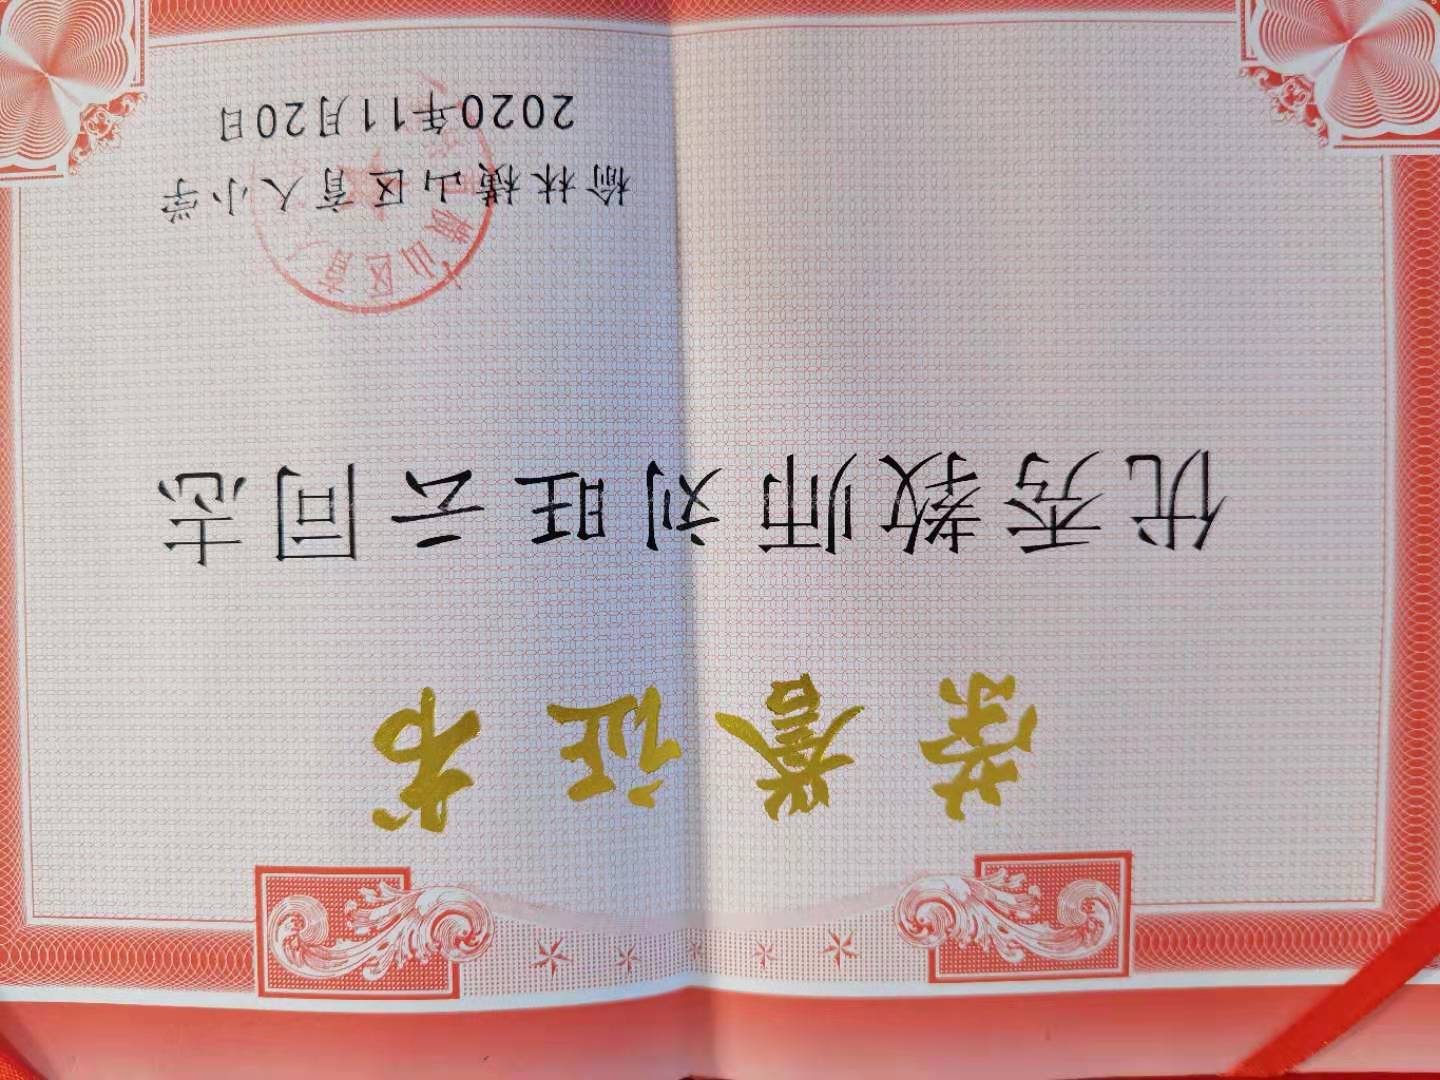 荣誉证书
优秀教师刘旺云同志
榆林横山区育人小学
2020年11月20日
横山区育人